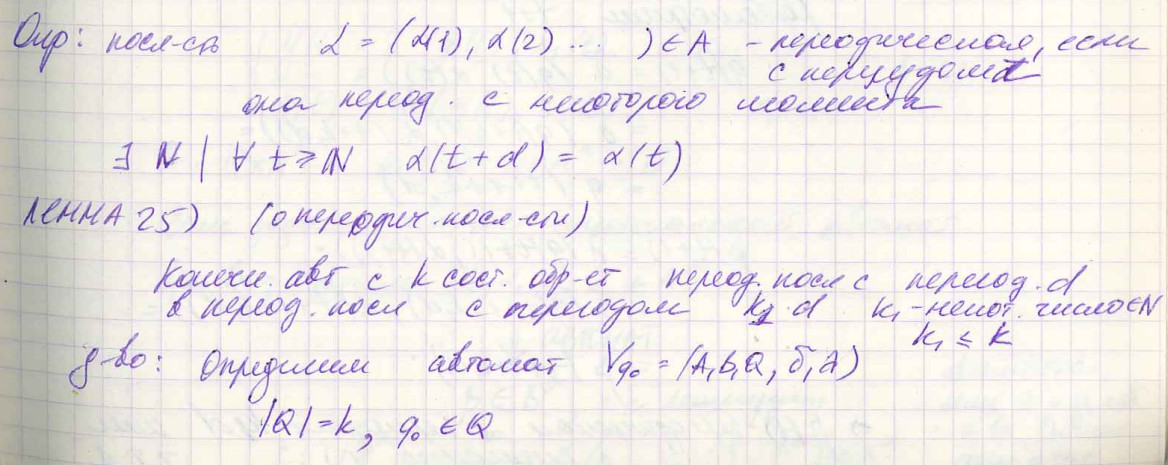 Опр: посл-сть α = (α(1), α(2) ... ) ∈ A - периодическая, если
с периодом d
она период. с некоторого момента
∃ N | ∀ t ≥ N α(t + d) = α(t)
ЛЕММА 25) (о периодич. посл-сти)
Конечн. авт с k сост. обр-ет период. посл с период. d
в период. посл с периодом k₁·d k₁ - некот. число ∈ N
k₁ ≤ k
д-во: Определим автомат V_q₀ = (A, B, Q, δ, λ)
|Q| = k, q₀ ∈ Q